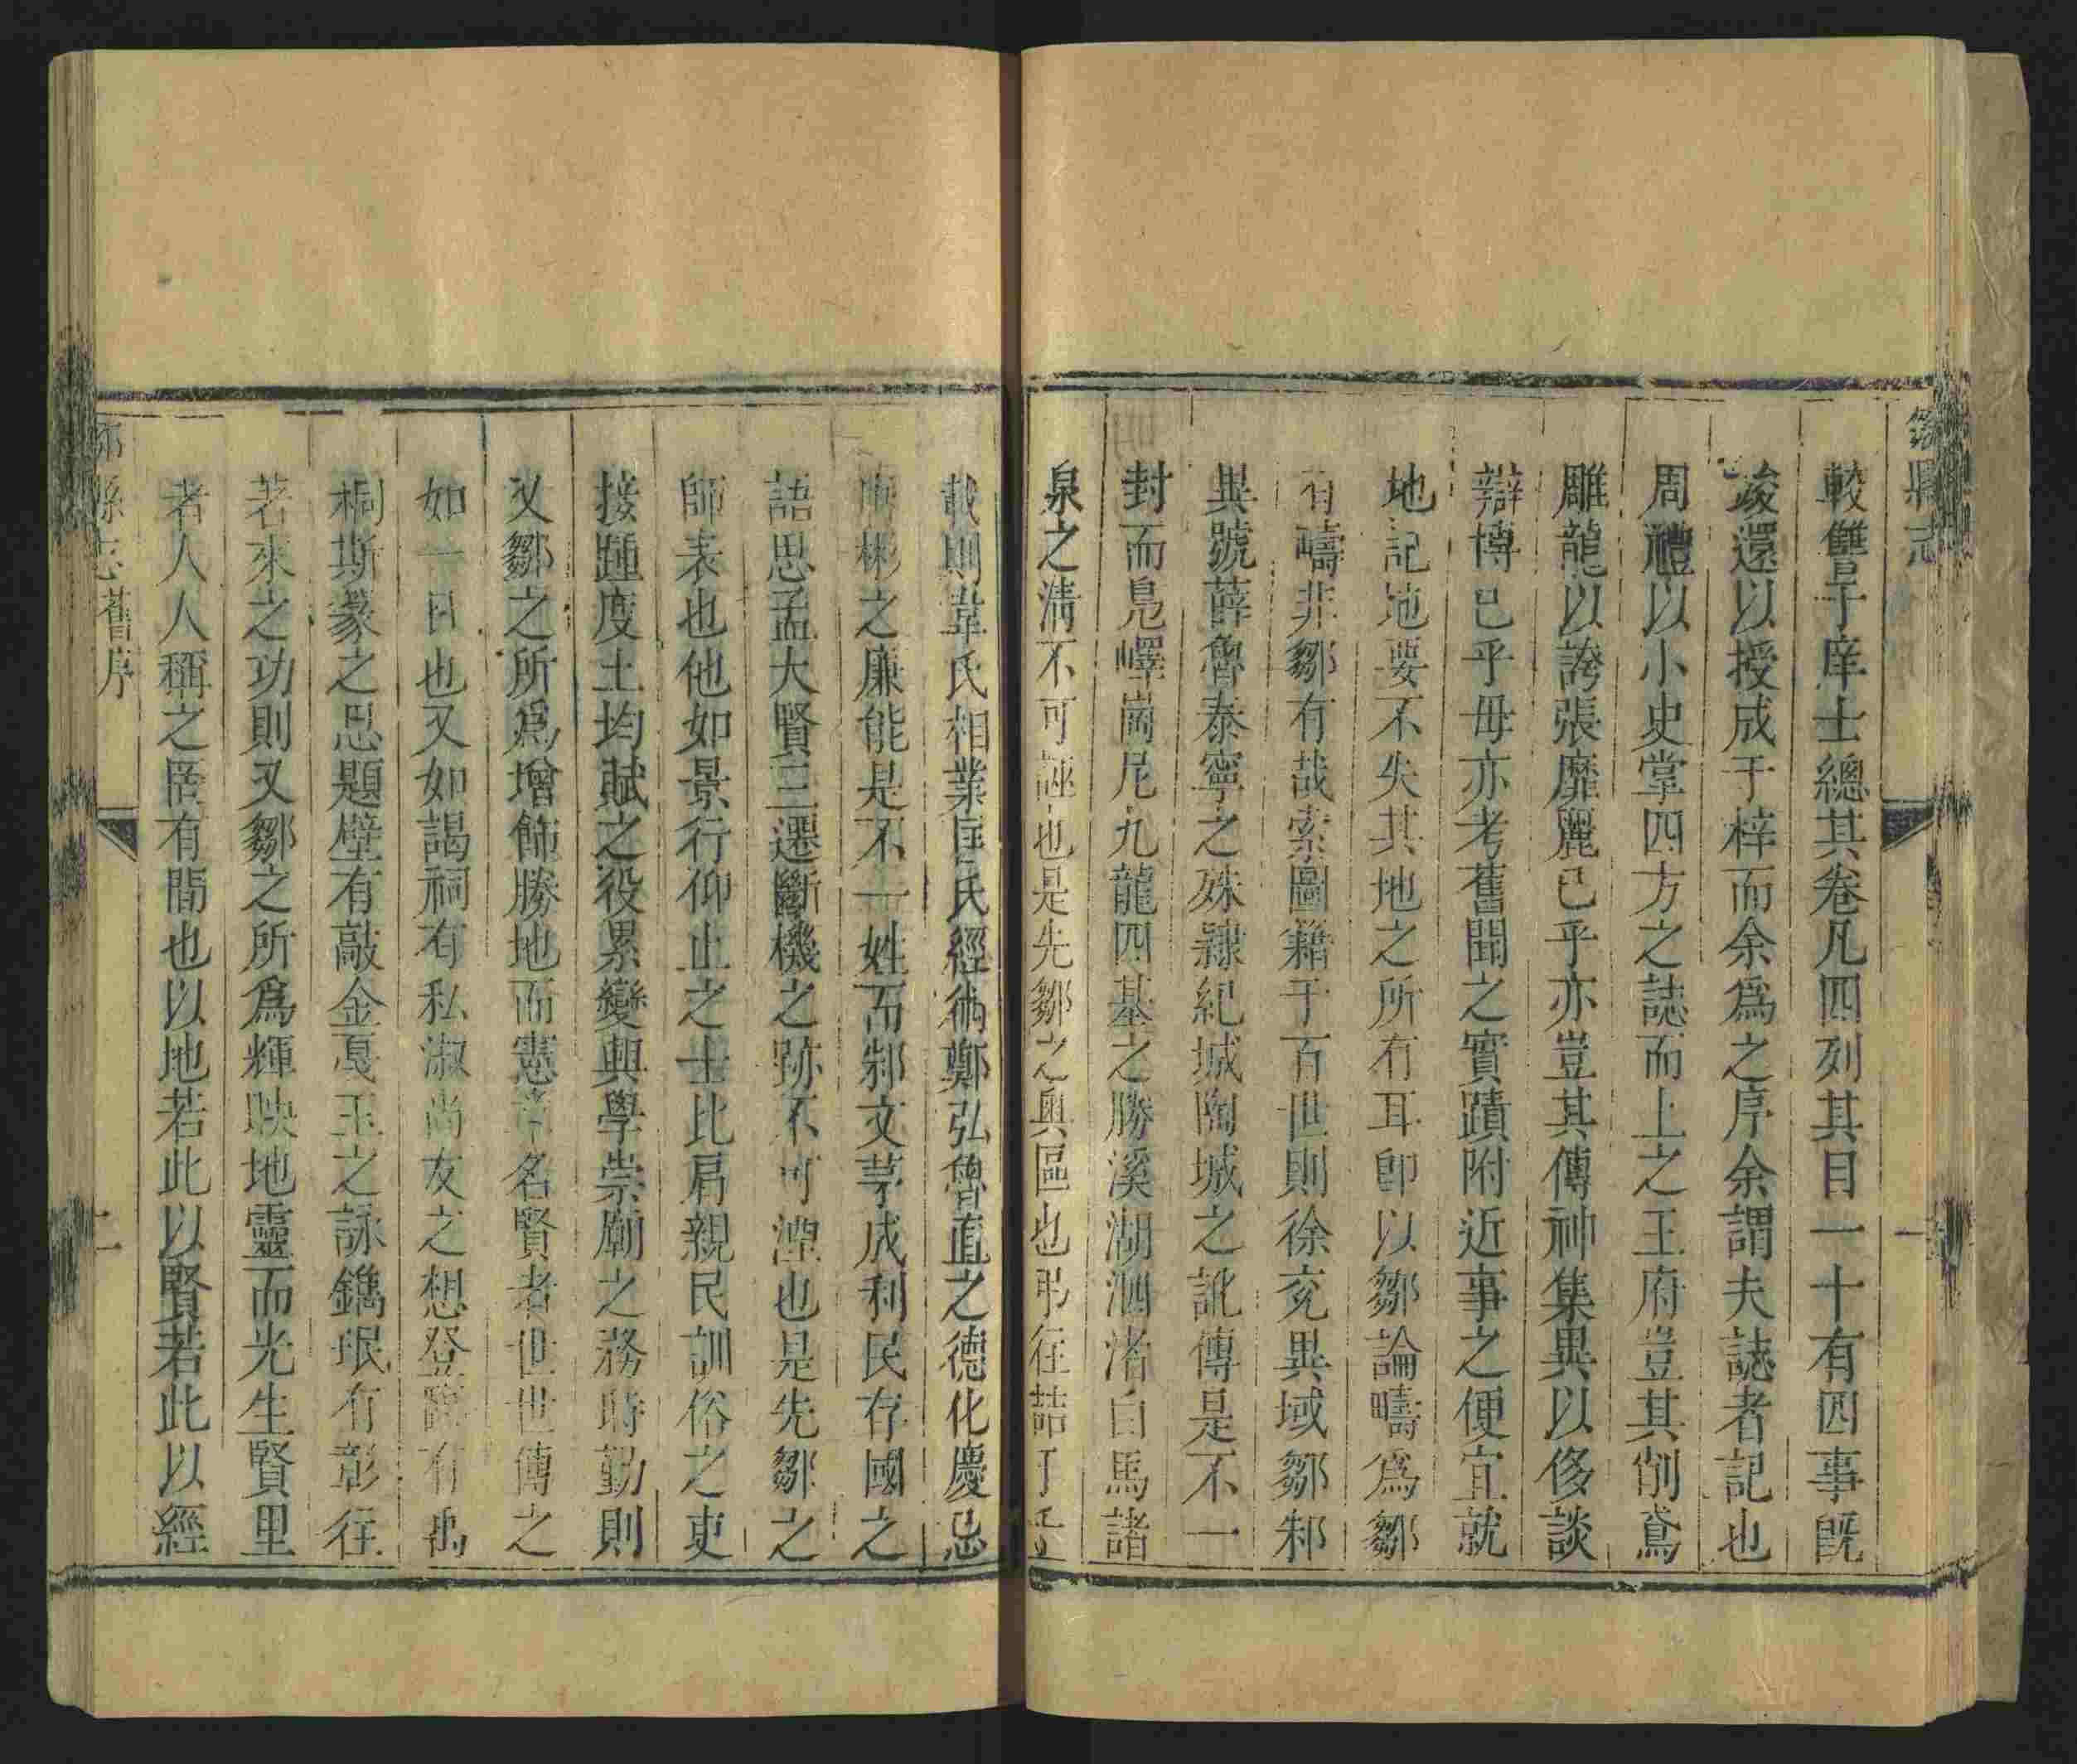 縣志
一
較讐于庠士總其卷凡四列其目一十有四事旣
竣還以授成于梓而余爲之序余謂夫誌者記也
周禮以小史掌四方之誌而上之王府豈其削鳶
雕龍以誇張靡麗已乎亦豈其傳神集異以侈談
辯博已乎毋亦考舊聞之實蹟附近事之便宜就
地記地要不失其地之所有耳卽以鄒論疇爲鄒
有疇非鄒有哉索圖籍于百世則徐兖異域鄒邾
異號薛魯泰寧之殊隷紀城陶城之訛傳是不一
封而鳧嶧崗尼九龍四基之勝溪湖泗渚白馬諸
泉之淸不可誣也是先鄒之輿區也弔往喆于
載則韋氏相業匡氏經術鄭弘魯直之德化慶忌
彬之廉能是不一姓而邾文莩成利民存國之
語思孟大賢三遷斷機之跡不可湮也是先鄒之
師表也他如景行仰止之士比肩親民訓俗之吏
接踵度土均賦之役累變興學崇廟之務時勤則
又鄒之所爲增飾勝地而憲章名賢者世世傳之
如一日也又如謁祠有私淑尚友之想登嶧有禹
桐斯篆之思題壁有敲金戛玉之詠鐫珉有彰往
若來之功則又鄒之所爲輝映地靈而光生賢里
者人人稱之罔有間也以地若此以賢若此以經
縣志舊序
二